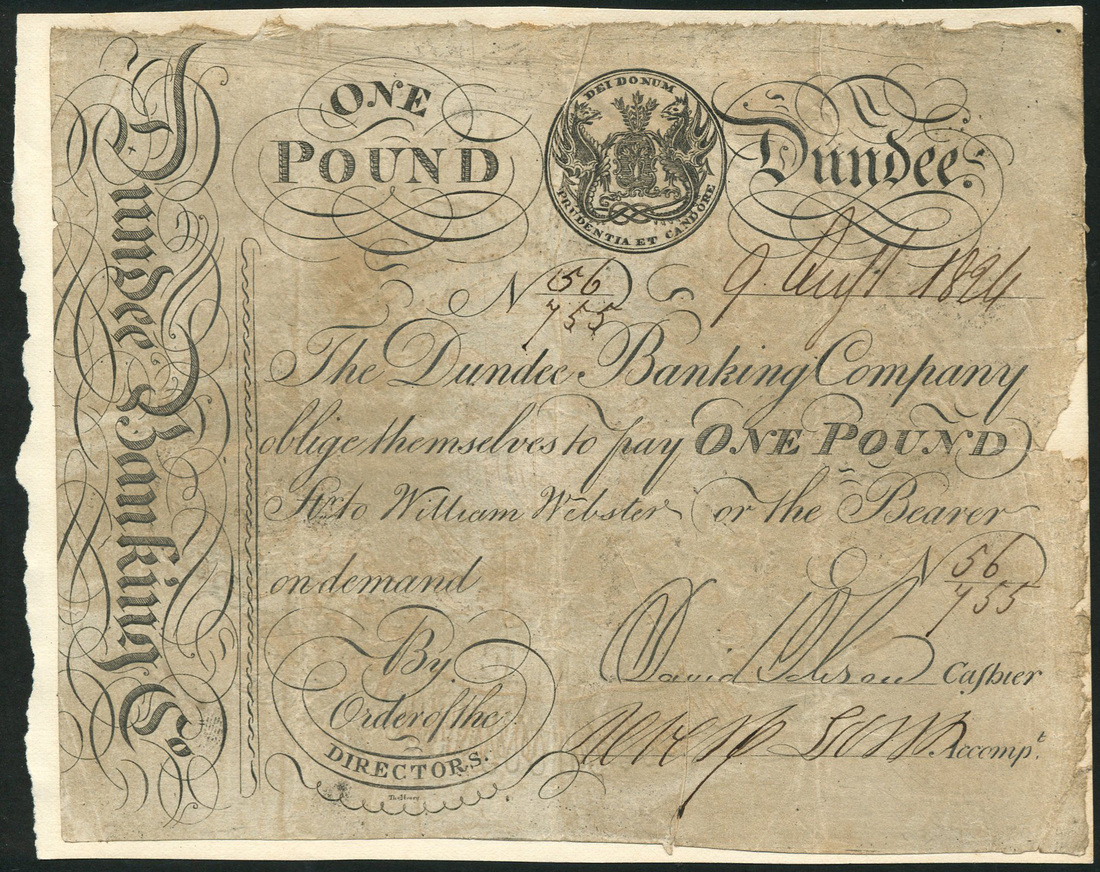 Dundee Banking Co
ONE
POUND
DEI DONUM
PRUDENTIA ET CANDORE
Dundee
No 56/755
9 Augt 1824
The Dundee Banking Company
oblige themselves to pay ONE POUND
Str. to William Webster or the Bearer
on demand
No 56/755
By
Order of the
DIRECTORS.
David Cashier
Accompt.